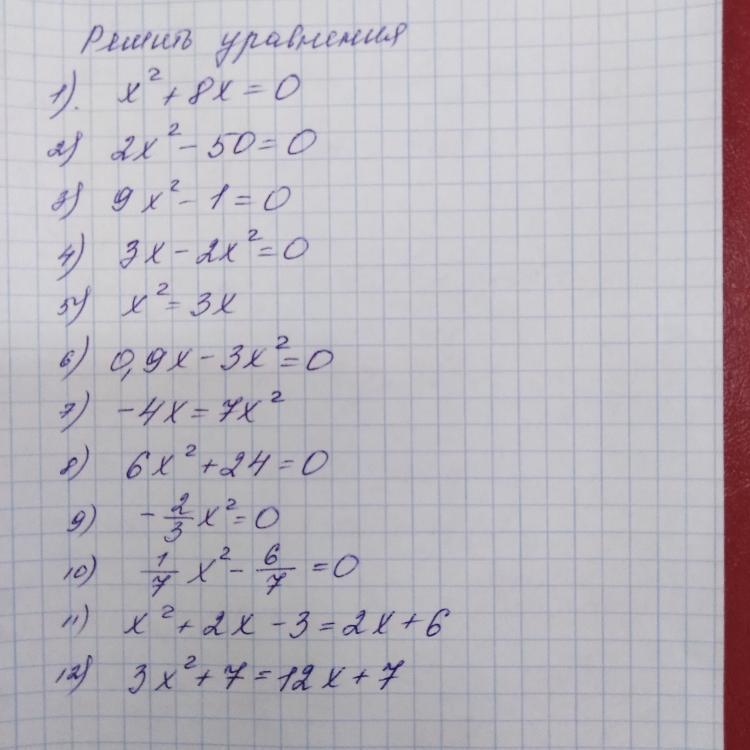 Решить уравнения
1). x² + 8x = 0
2) 2x² - 50 = 0
3) 9x² - 1 = 0
4) 3x - 2x² = 0
5) x² = 3x
6) 0,9x - 3x² = 0
7) -4x = 7x²
8) 6x² + 24 = 0
9) -2/3 x² = 0
10) 1/7 x² - 6/7 = 0
11) x² + 2x - 3 = 2x + 6
12) 3x² + 7 = 12x + 7